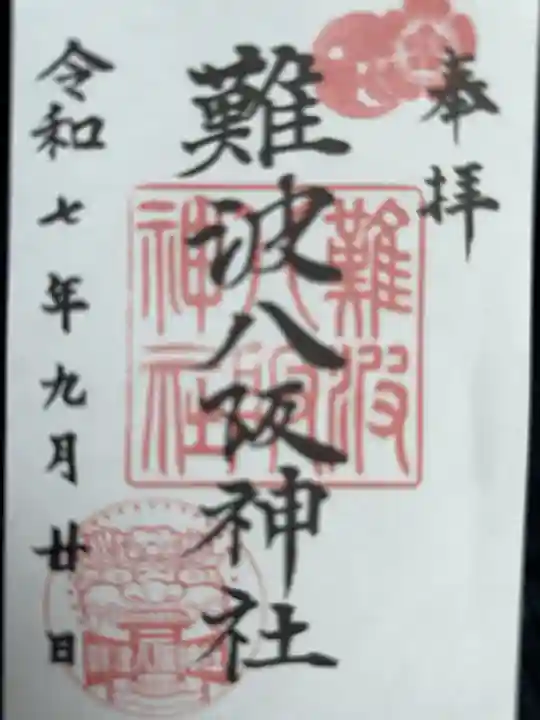 奉拝
難波八阪神社
難波八阪神社
令和七年九月廿日